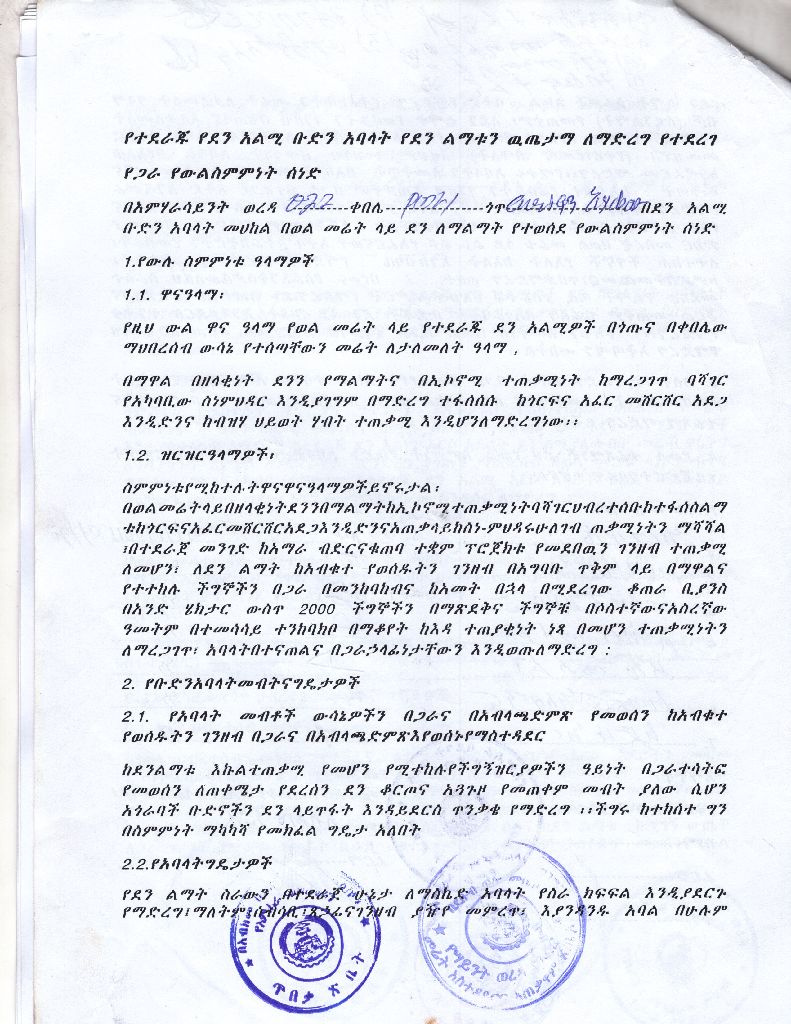 የተደራጁ የደን አልሚ ቡድን አባላት የደን ልማቱን ዉጤታማ ለማድረግ የተደረገ
የጋራ የውልስምምነት ሰነድ
በአምሃራሳይንት ወረዳ 022 ቀበሌ ጎጥ በደን አልሚ
ቡድን አባላት መሀከል በወል መሬት ላይ ደን ለማልማት የተወሰደ የውልስምምነት ሰነድ
1.የውሉ ስምምነቱ ዓላማዎች
1.1. ዋናዓላማ፡
የዚህ ውል ዋና ዓላማ የወል መሬት ላይ የተደራጁ ደን አልሚዎች በጎጡና በቀበሌው
ማህበረሰብ ውሳኔ የተሰጣቸውን መሬት ለታለመለት ዓላማ ፤
በማዋል በዘላቂነት ደንን የማልማትና በኢኮኖሚ ተጠቃሚነት ከማረጋገጥ ባሻገር
የአካባቢው ስነምህዳር እንዲያገግም በማድረግ ተፋሰሱሉ ከጎርፍና አፈር መሸርሸር አደጋ
እንዲድንና ከብዝሃ ህይወት ሃብት ተጠቃሚ እንዲሆንለማድረግነው፡፡
1.2. ዝርዝርዓላማዎች፡
ስምምነቱየሚከተሉትዋናዋናዓላማዎችይኖሩታል፡
በወልመሬትላይበዘላቂነትደንንበማልማትከኢኮኖሚተጠቃሚነትባሻገርህብረተሰቡከተፋሰስልማ
ቱከጎርፍናአፈርመሸርሸርአደጋእንዲድንናአጠቃላይከስነ-ምህዳሩሁለገብ ጠቃሚነትን ማሻሻል
፤በተደራጀ መንገድ ከአማራ ብድርናቁጠባ ተቋም ፕሮጀክቱ የመደበዉን ገንዘብ ተጠቃሚ
ለመሆን፤ ለደን ልማት ከአብቁተ የወሰዱትን ገንዘብ በአግባቡ ጥቅም ላይ በማዋልና
የተተከሉ ችግኞችን በጋራ በመንከባከብና ከአመት በኋላ በሚደረገው ቆጠራ ቢያንስ
በአንድ ሄክታር ውስጥ 2000 ችግኞችን በማጽደቅና ችግኞቹ በሶስተኛውናአስረኛው
ዓመትም በተመሳሳይ ተንከባክቦ በማቆየት ከእዳ ተጠያቂነት ነጻ በመሆን ተጠቃሚነትን
ለማረጋገጥ፤ አባላትበተናጠልና በጋራኃላፊነታቸውን እንዲወጡለማድረግ ፡
2. የቡድንአባላትመብትናግዴታዎች
2.1. የአባላት መብቶች ውሳኔዎችን በጋራና በአብላጫድምጽ የመወሰን ከአብቁተ
የወሰዱትን ገንዘብ በጋራና በአብላጫድምጽእየወሰኑየማስተዳደር
ከደንልማቱ እኩልተጠቃሚ የመሆን የሚተከሉየችግኝዝርያዎችን ዓይነት በጋራተሳትፎ
የመወሰን ለጠቀሜታ የደረሰን ደን ቆርጦና አጓጉዞ የመጠቀም መብት ያለው ሲሆን
አጎራባች ቡድኖችን ደን ላይጥፋት እንዳይደርስ ጥንቃቄ የማድረግ ፡፡ችግሩ ከተከሰተ ግን
በስምምነት ማካካሻ የመክፈል ግዴታ አለበት
2.2.የአባላትግዴታዎች
የደን ልማት ስራውን በተደራጀ ሁኔታ ለማስኬድ አባላት የስራ ክፍፍል እንዲያደርጉ
የማድረግ፤ማለትም፤ሰብሳቢ፤ጸኃፊናገንዘብ ያዥየ መምረጥ፤ እያንዳንዱ አባል በሁሉም
ጥበቃ ጽ ቤት